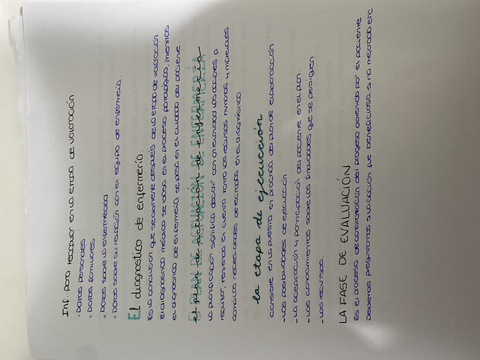 Inf para recopilar en la etapa de valoración
- Datos personales
- Datos familiares
- Datos sobre la enfermedad
- Datos sobre su relación con el equipo de enfermería.
El diagnostico de enfermería.
Es la conclusion que se obtiene después de la etapa de valoración
el diagnóstico médico se basa en el proceso patológico, mientras
el diagnóstico de enfermería se basa en el cuidado del paciente
EL PLAN DE ACTUACIÓN DE ENFERMERÍA
el plan de actuación de enfermería
La planificación significa decidir con antelación las acciones a
realizar, teniendo en cuenta tanto los recursos humanos y materiales
como las necesidades detectadas en el diagnóstico
la etapa de ejecucion
consiste en la puesta en práctica del plan de
- Las posibilidades de ejecución
- La aceptación y participación del paciente en el plan
- Los conocimientos sobre las finalidades que se persiguen
- Los recursos
LA FASE DE EVALUACIÓN
Es el proceso de del progreso por el paciente
Debemos preguntarnos si la acción que beneficiosa si ha mejorado etc